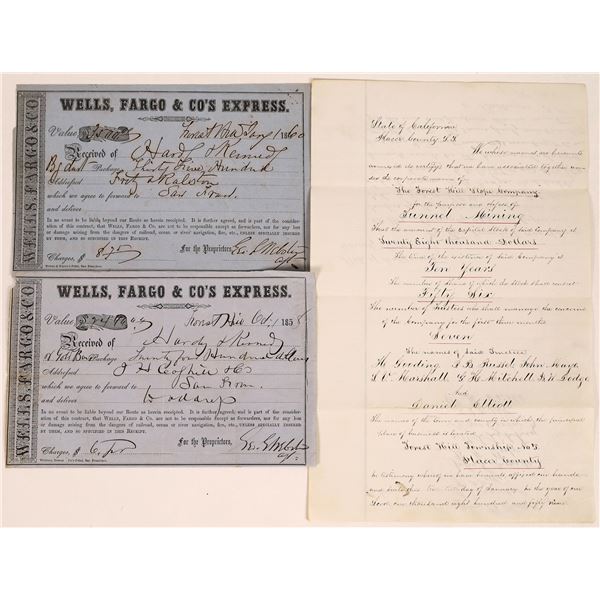 WELLS, FARGO & CO
WELLS, FARGO & CO'S EXPRESS.
Value $
Forest Hill Jany 1 1860
Received of Hardy & Kennedy
Package Thirty Five Hundred
Addressed Fretz & Ralston
which we agree to forward to San Fran.
and deliver
In no event to be liable beyond our Route as herein receipted. It is further agreed, and is part of the consideration
of this contract, that WELLS, FARGO & Co. are not to be responsible, except as forwarders, nor for any loss
or damage arising from the dangers of railroad, ocean or river navigation, fire, &c., UNLESS SPECIALLY INSURED
BY THEM, AND SO SPECIFIED IN THIS RECEIPT.
For the Proprietors,
Charges, $ 8.75
WELLS, FARGO & CO
WELLS, FARGO & CO'S EXPRESS.
Value $ 2400
185
Received of Hardy & Kennedy
Package Twenty four Hundred dollars
Addressed
which we agree to forward to San Fran.
and deliver
In no event to be liable beyond our Route as herein receipted. It is further agreed, and is part of the consideration
of this contract, that WELLS, FARGO & Co. are not to be responsible, except as forwarders, nor for any loss
or damage arising from the dangers of railroad, ocean or river navigation, fire, &c., UNLESS SPECIALLY INSURED
BY THEM, AND SO SPECIFIED IN THIS RECEIPT.
For the Proprietors,
Charges, $ 6.00
State of California
Placer County S.S.
We whose names are hereunto
annexed do certify that we have associated together un-
der the corporate name of
The Forest Hill Slope Company
for the purpose and object of
Tunnel Mining
That the amount of the Capital Stock of said Company is
Twenty Eight thousand Dollars
The time of the existence of said Company is
Ten Years
The number of shares of which the Stock shall consist
Fifty Six
The number of Trustees who shall manage the concerns
of the Company for the first three months
Seven
The names of said Trustees
H. Gooding S B Russel John Mays
L V Marshall G H Mitchell F H Dodge
And
Daniel Elliott
The names of the town and county in which the principal
place of business is located
Forest Hill Township No 5.
Placer County
In testimony whereof we have hereunto affixed our hands
and seals this day of January in the year of our
Lord one thousand eight hundred and fifty nine